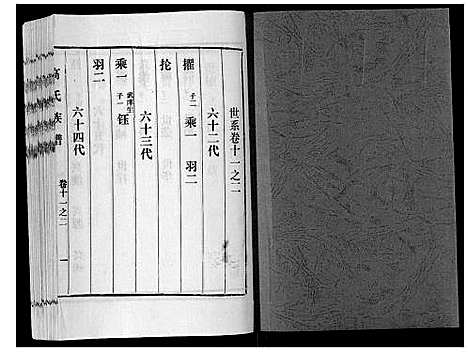 世系卷十一之二
六十二代
擢 子二 乘一 羽二
抡
六十三代
乘一 武庠生 子一 钰
羽二
六十四代
氏族譜
卷十一之二
一